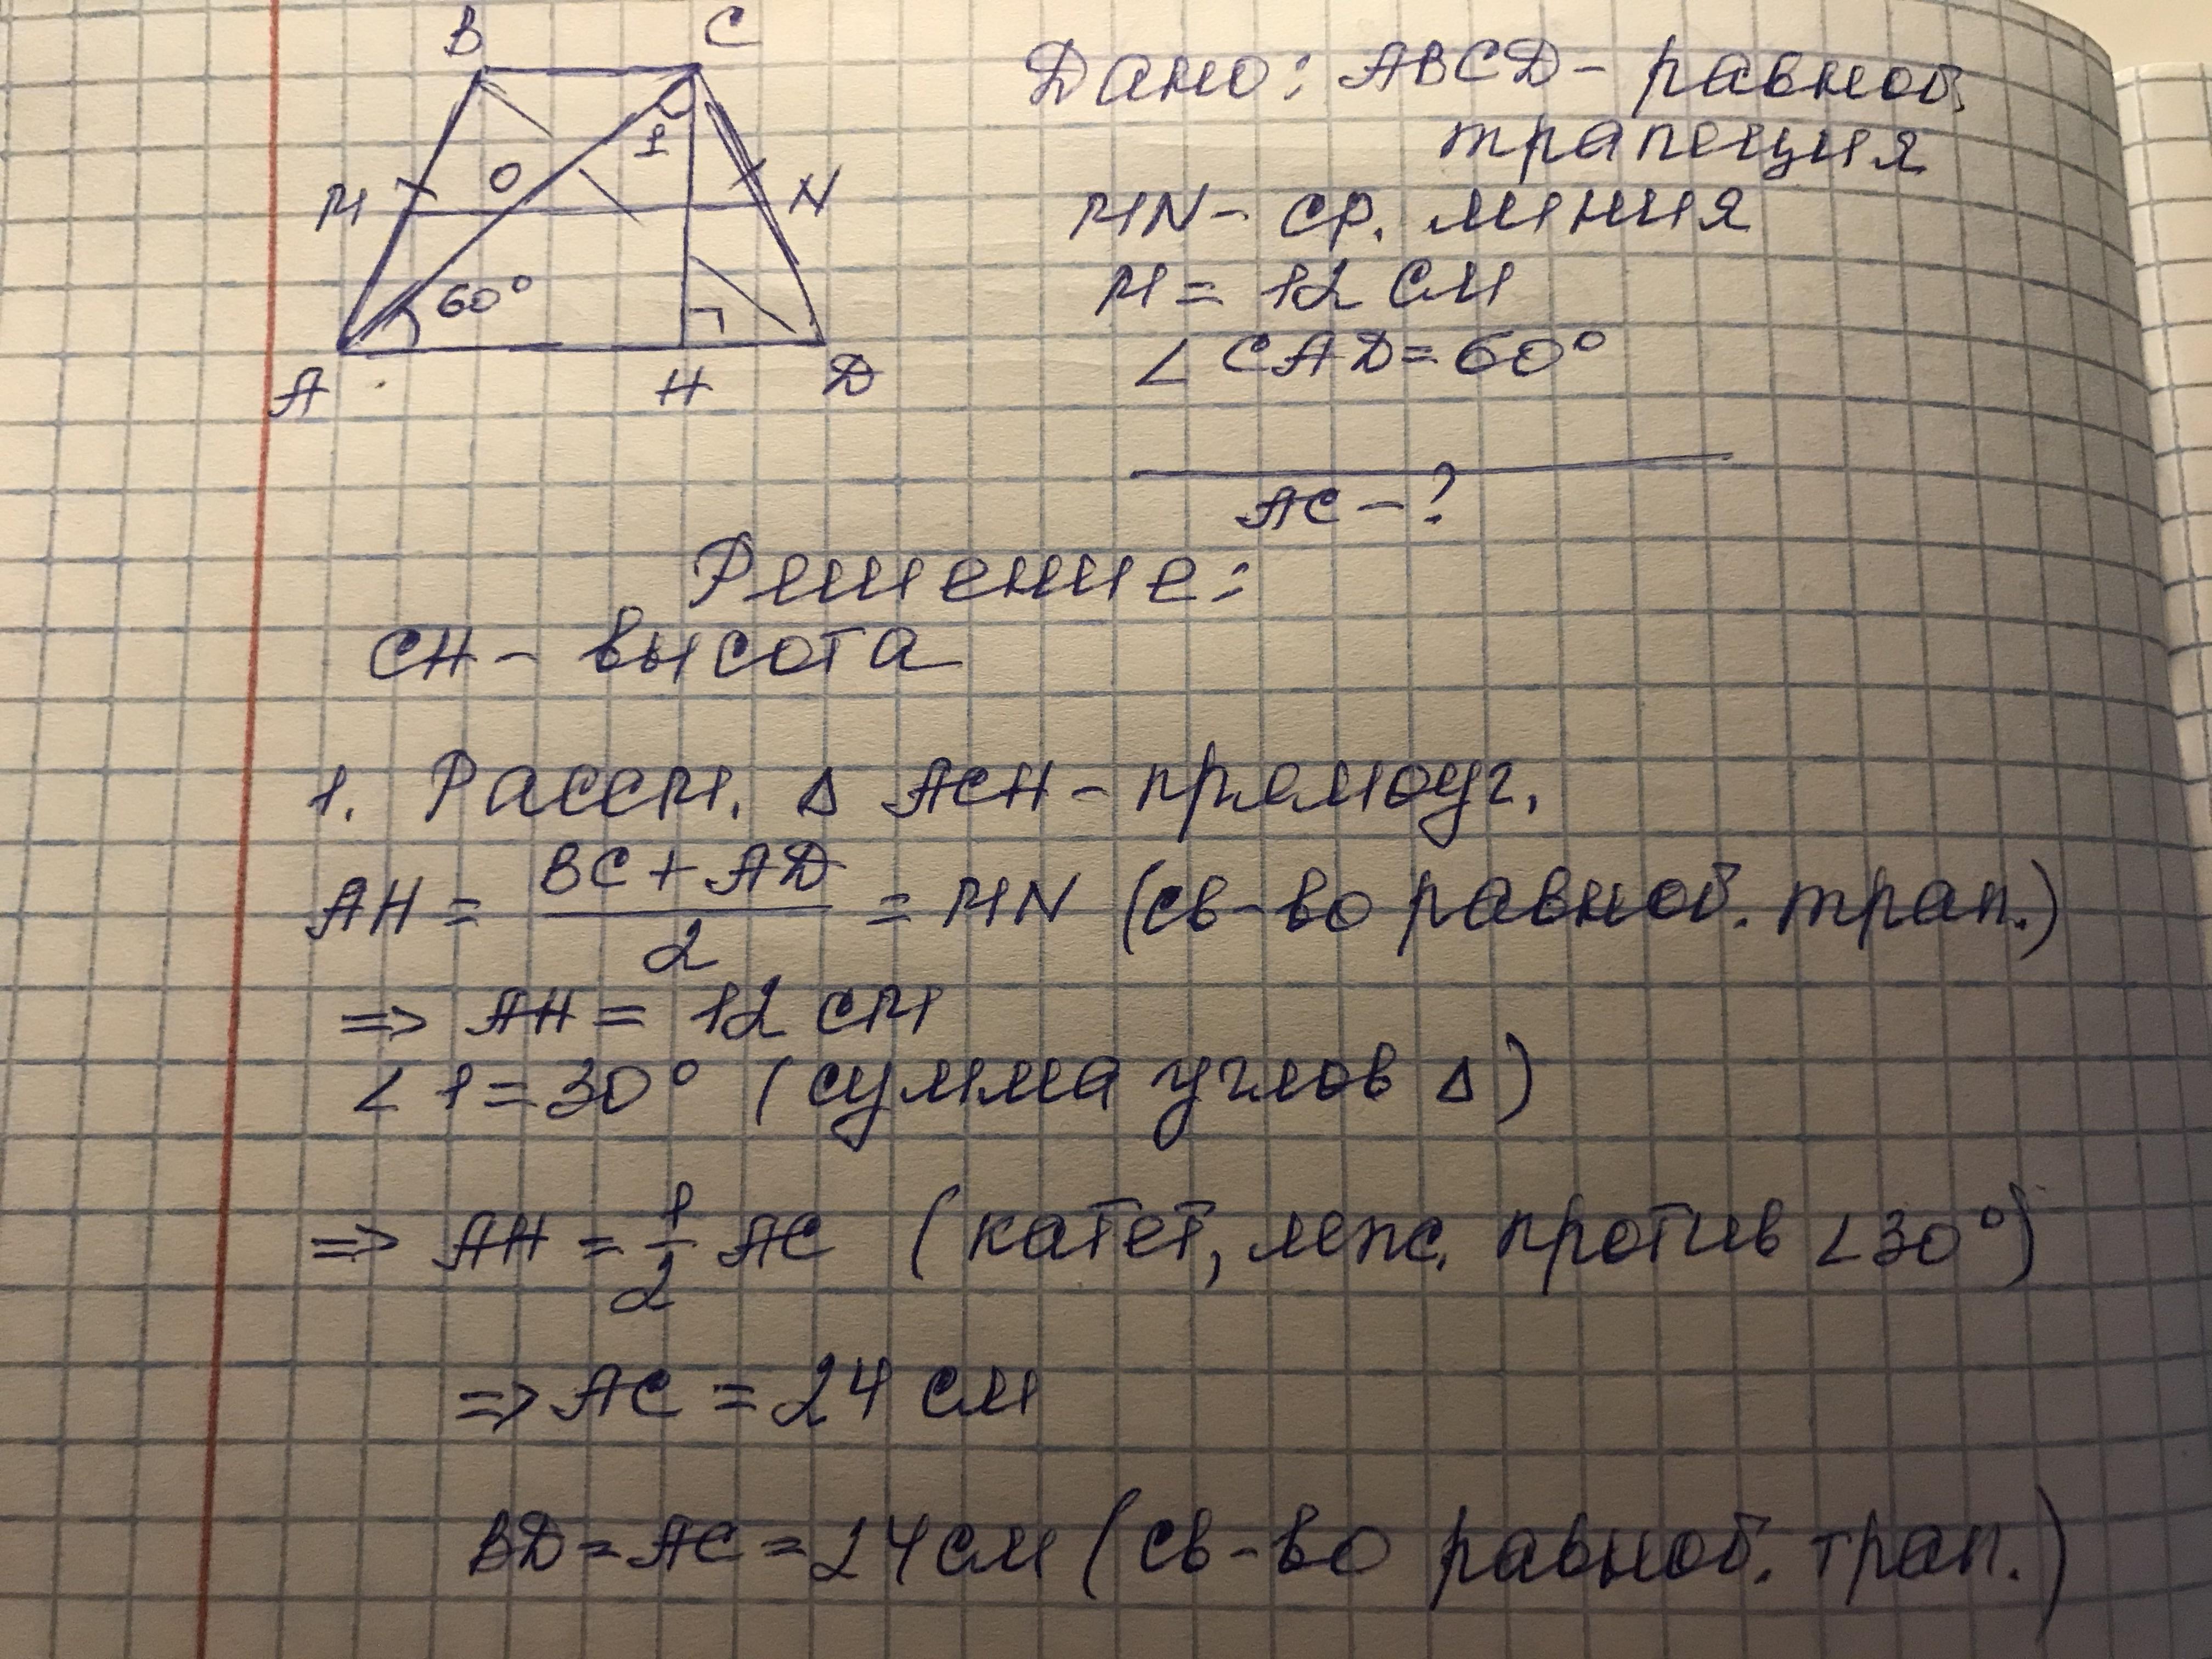 B C
M O 1 N
60°
A H D
Дано: ABCD - равноб.
трапеция
MN - ср. линия
M = 12 см
∠ CAD = 60°
AC - ?
Решение:
CH - высота
1. Рассм. Δ ACH - прямоуг.
AH = (BC + AD)/2 = MN (св-во равноб. трап.)
=> AH = 12 см
∠ 1 = 30° (сумма углов Δ)
=> AH = 1/2 AC (катет, леж. против ∠30°)
=> AC = 24 см
BD = AC = 24 см (св-во равноб. трап.)